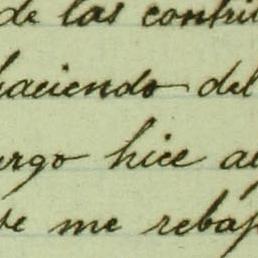 de las contri
haciendo del
argo hice a
te me rebaj